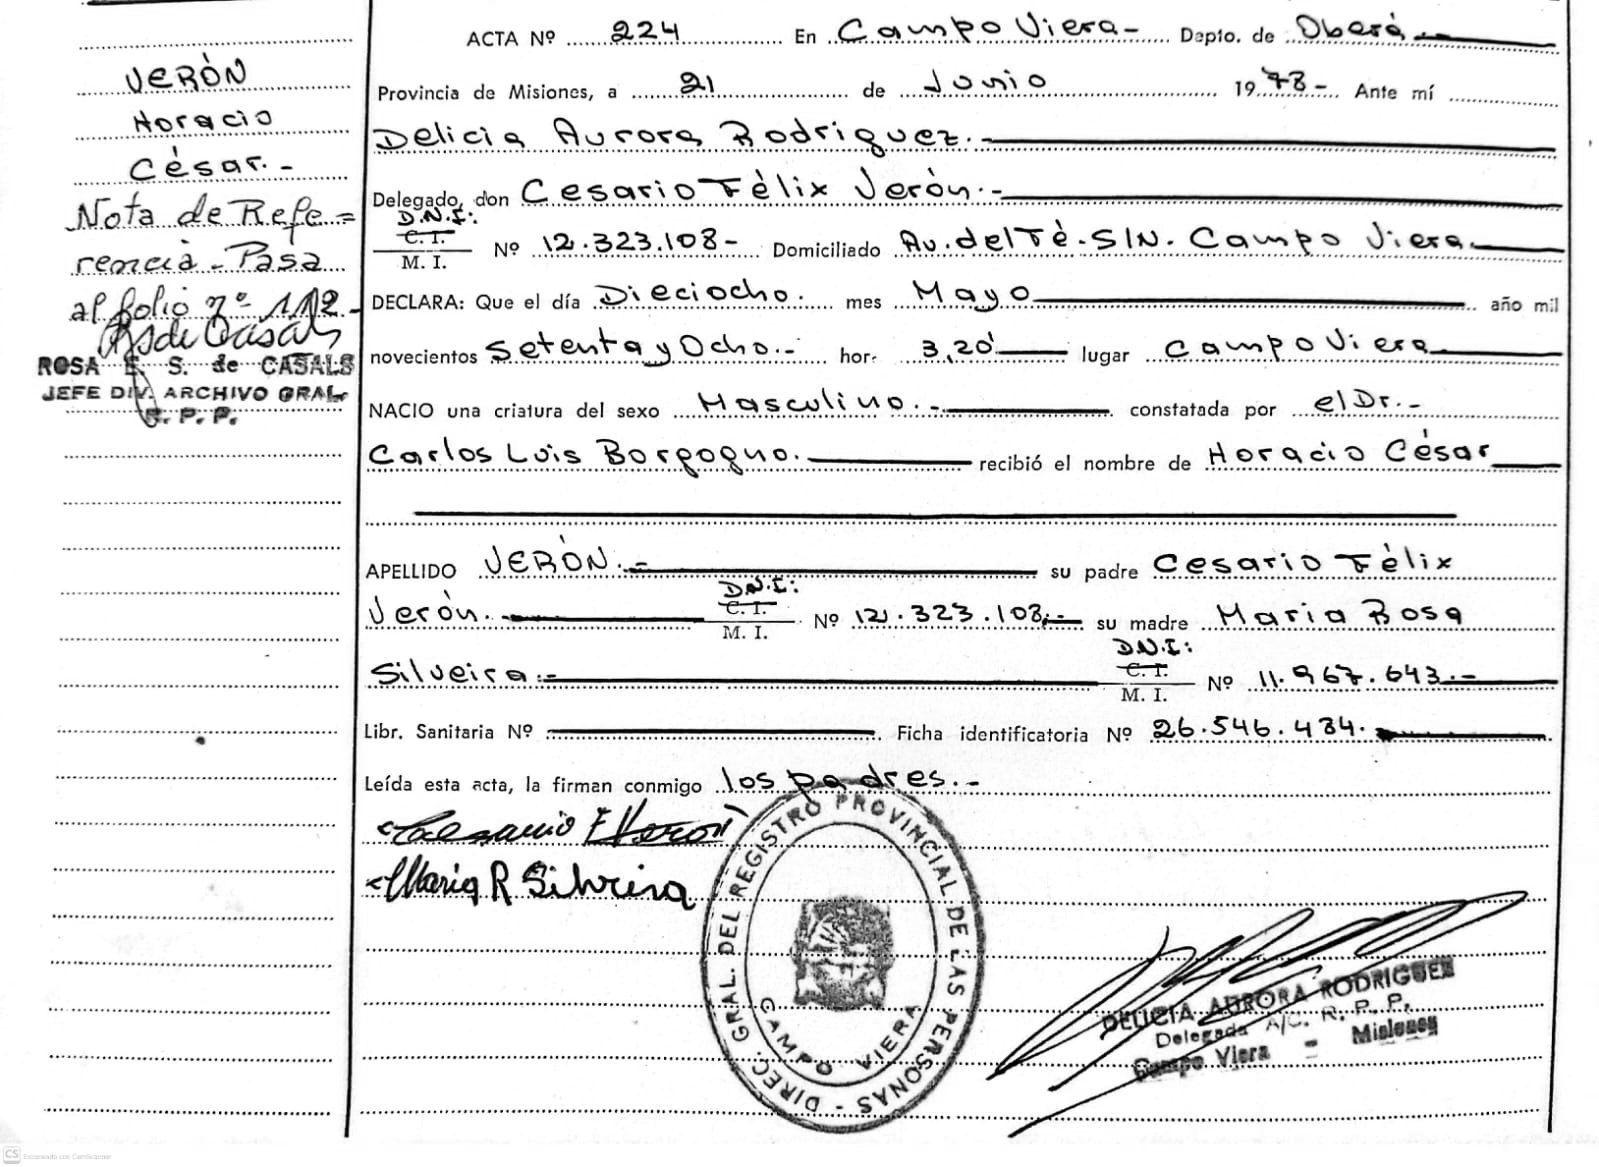 VERÓN
Horacio
César.-
Nota de Refe=
rencia - Pasa
al folio nº 112.-
RSdeCasals
ROSA E. S. de CASALS
JEFE DIV. ARCHIVO GRAL.
R. P. P.
ACTA Nº 224 En Campo Viera- Depto. de Oberá.-
Provincia de Misiones, a 21 de Junio 1978- Ante mí
Delicia Aurora Rodriguez.-
Delegado, don Cesario Félix Verón.-
D.N.I:
C. I.
M. I. Nº 12.323.108- Domiciliado Av. del Té.S/N. Campo Viera
DECLARA: Que el día Dieciocho. mes Mayo año mil
novecientos Setenta y Ocho.- hor. 3,20' lugar Campo Viera
NACIO una criatura del sexo Masculino.- constatada por el Dr.-
Carlos Luis Borgogno. recibió el nombre de Horacio César
APELLIDO VERÓN.- su padre Cesario Félix
D.N.I:
C. I.
Verón. M. I. Nº 12.323.108.- su madre Maria Rosa
D.N.I:
C. I.
Silveira.- M. I. Nº 11.967.643.-
Libr. Sanitaria Nº Ficha identificatoria Nº 26.546.484.
Leída esta acta, la firman conmigo los padres.-
Cesario F Veron
Maria R. Silveira
DIREC. GRAL. DEL REGISTRO PROVINCIAL DE LAS PERSONAS -
CAMPO VIERA
DELICIA AURORA RODRIGUEZ
Delegada A/C. R. P. P.
Campo Viera - Misiones
CS Escaneado con CamScanner